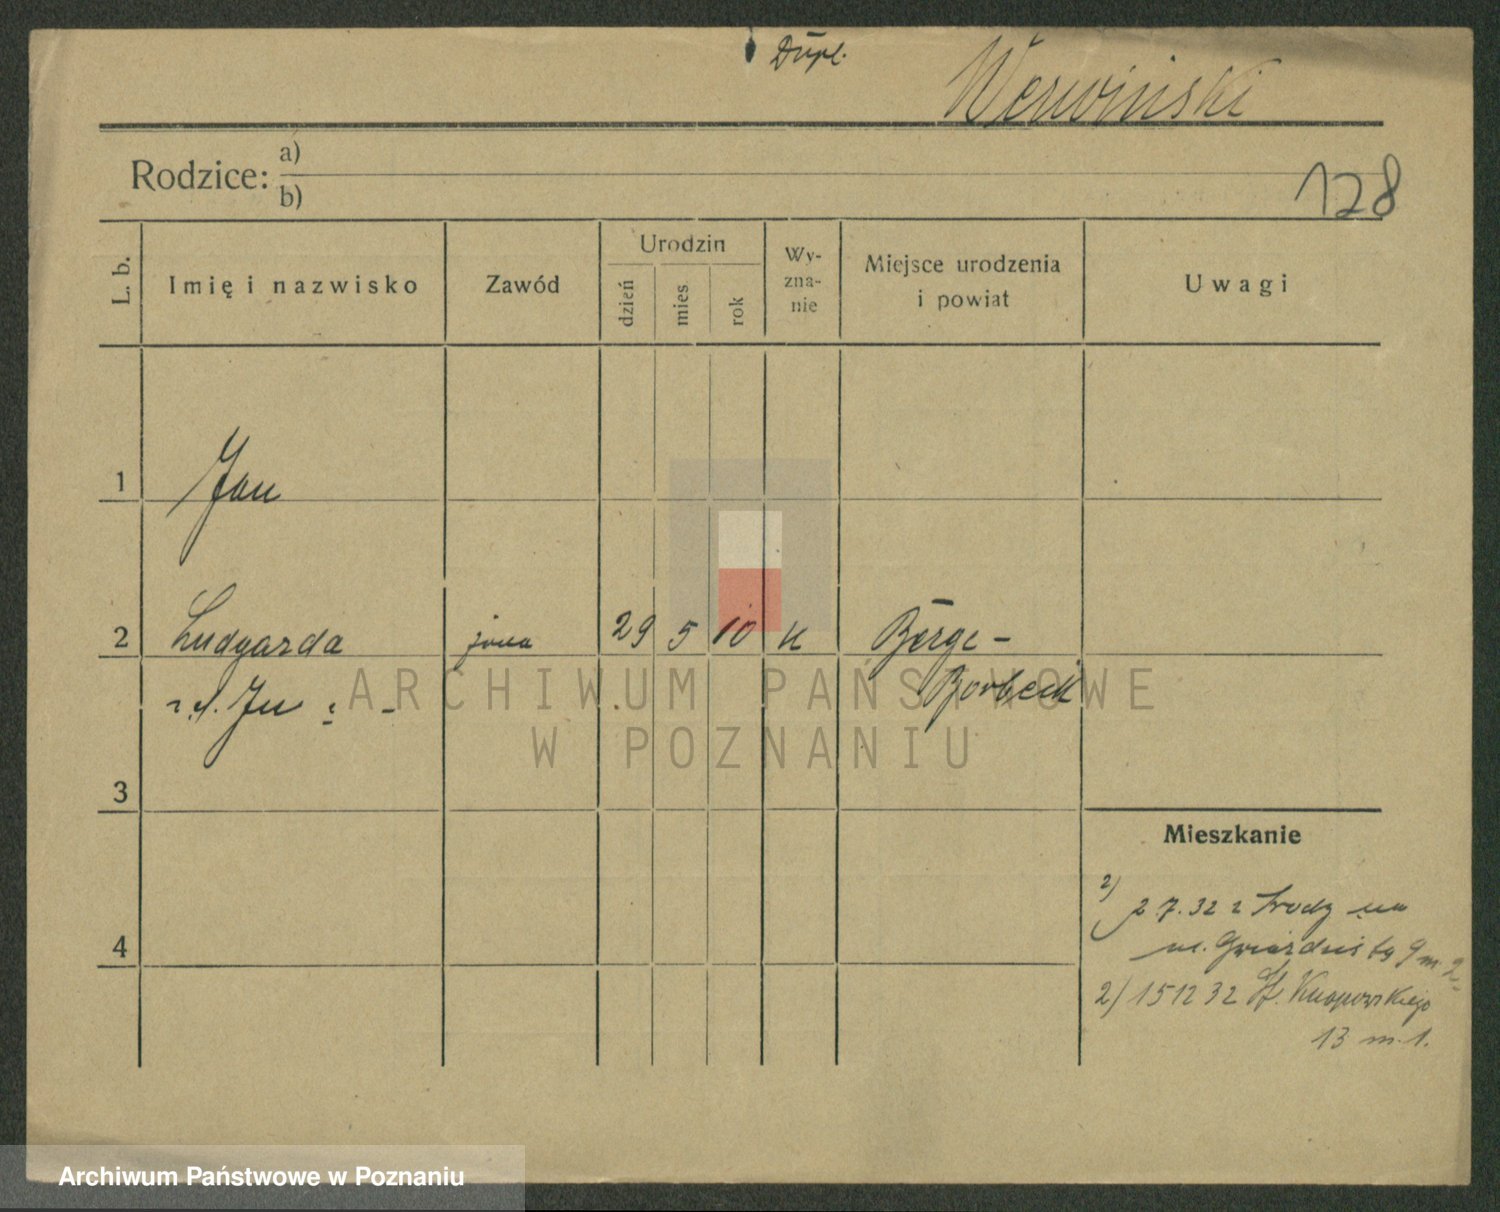 Dupl.
Werwiński
Rodzice: a)
b)
128
L. b.
Imię i nazwisko
Zawód
Urodzin
dzień
mies.
rok
Wy-
zna-
nie
Miejsce urodzenia
i powiat
Uwagi
1
Jan
2
Ludgarda
żona
29
5
10
K
Berge-
Borbeck
3
4
Mieszkanie
2)
2 7. 32 z Środy na
ul. 9 m 2
2) 15 12 32 Knapowskiego
13 m. 1.
ARCHIWUM PAŃSTWOWE
W POZNANIU
Archiwum Państwowe w Poznaniu